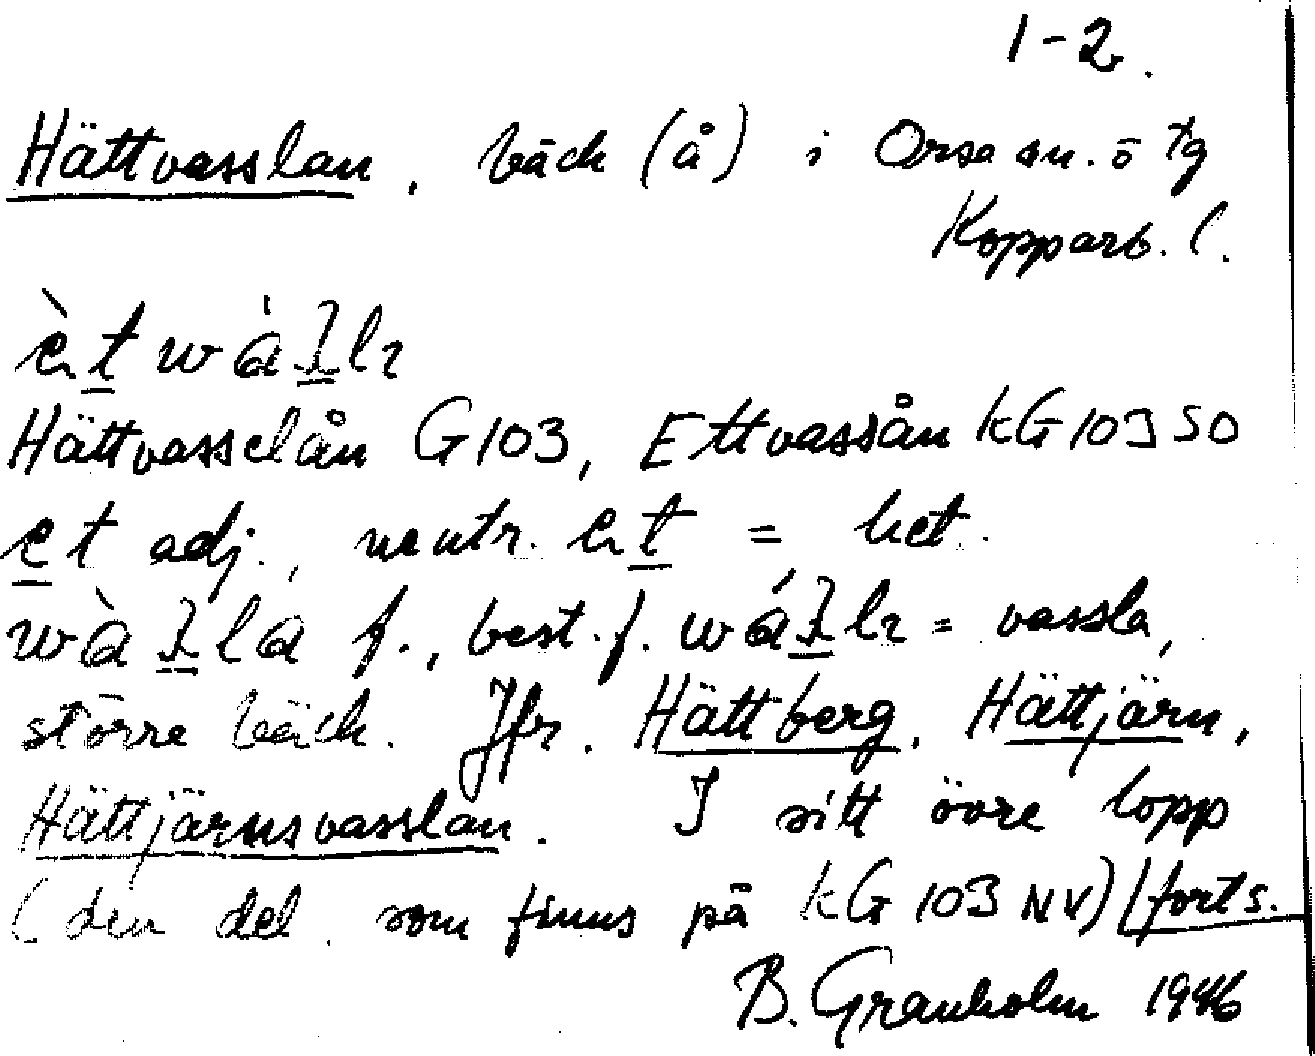 1-2.
Hättvasslan, bäck (å) i Orsa sn. ö tg
Kopparb. l.
Hättvasselån G103, Ettvassån kG 103 SO
et adj., neutr. et = het.
f., best. f. = vassla,
större bäck. Jfr. Hättberg, Hättjärn,
Hättjärnsvasslan. I sitt övre lopp
(den del som finns på kG 103 NV) (forts.
B. Granholm 1946